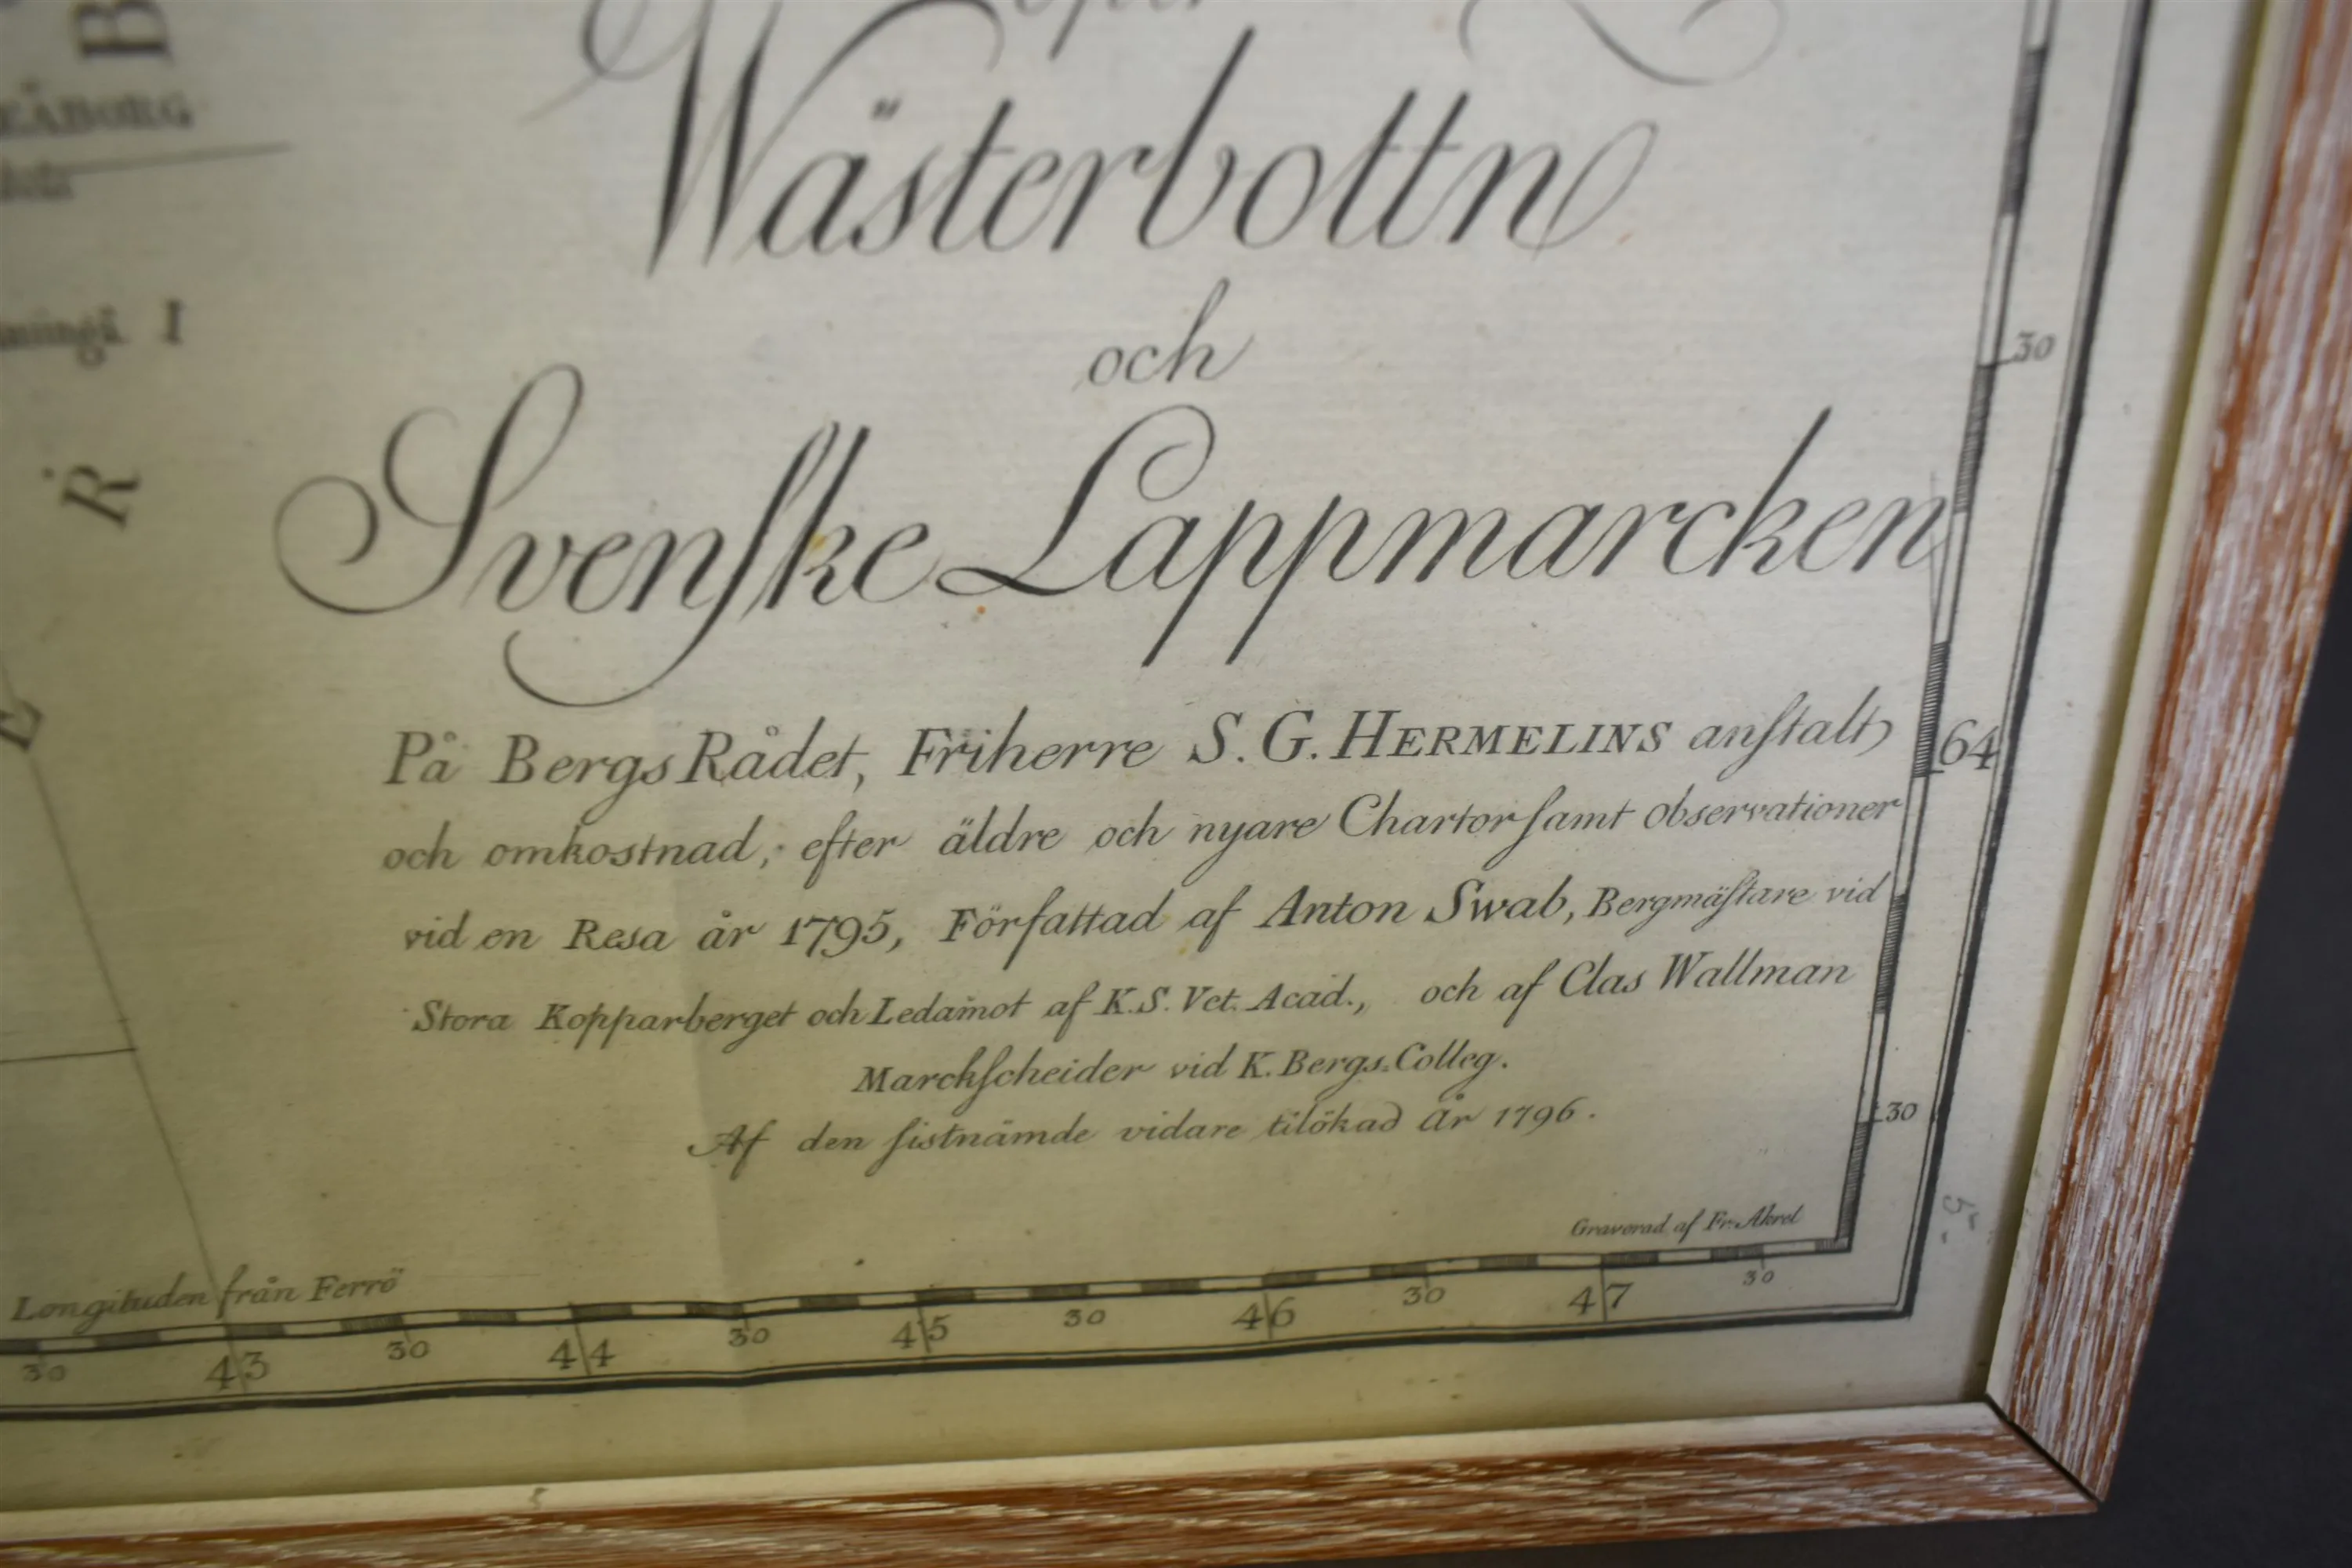 B
Wästerbottn
och
Svenſke Lappmarcken
På Bergs Rådet, Friherre S. G. HERMELINS anſtalt
och omkostnad, efter äldre och nyare Chartor ſamt observationer
vid en Resa år 1795, Författad af Anton Swab, Bergmäſtare vid
Stora Kopparberget och Ledamot af K.S. Vet. Acad., och af Clas Wallman
Marckſcheider vid K. Bergs. Colleg.
Af den ſistnämde vidare tilökad År 1796.
Graverad af Fr. Akrel
Longituden från Ferrö
30 43 30 44 30 45 30 46 30 47 30
30
64
30
R
E
I